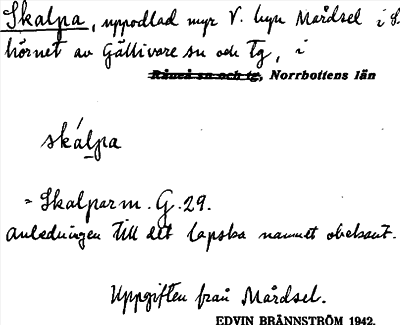 Skalpa, uppodlad myr V. byn Mårdsel i S.
hörnet av Gällivare sn och tg, i
Råneå sn och tg, Norrbottens län
skálpa
= Skalparm. G. 29.
Anledningen till det lapska namnet obekant.
Uppgiften från Mårdsel.
EDVIN BRÄNNSTRÖM 1942.